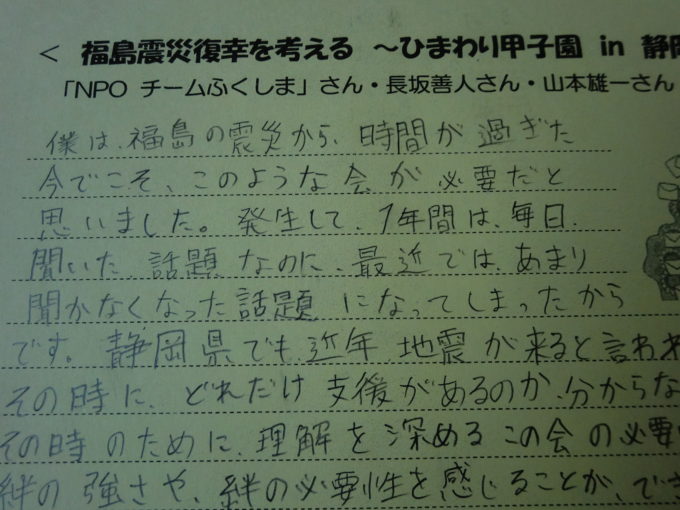 < 福島震災復幸を考える ～ひまわり甲子園 in 静岡
「NPO チームふくしま」さん・長坂善人さん・山本雄一さん
僕は、福島の震災から、時間が過ぎた
今でこそ、このような会が必要だと
思いました。発生して、1年間は、毎日、
聞いた話題なのに、最近では、あまり
聞かなくなった話題になってしまったから
です。静岡県でも、近年、地震が来ると言われ
その時に、どれだけ支後があるのか、分からな
その時のために、理解を深めるこの会の必要
絆の強さや、絆の必要性を感じることが、でき